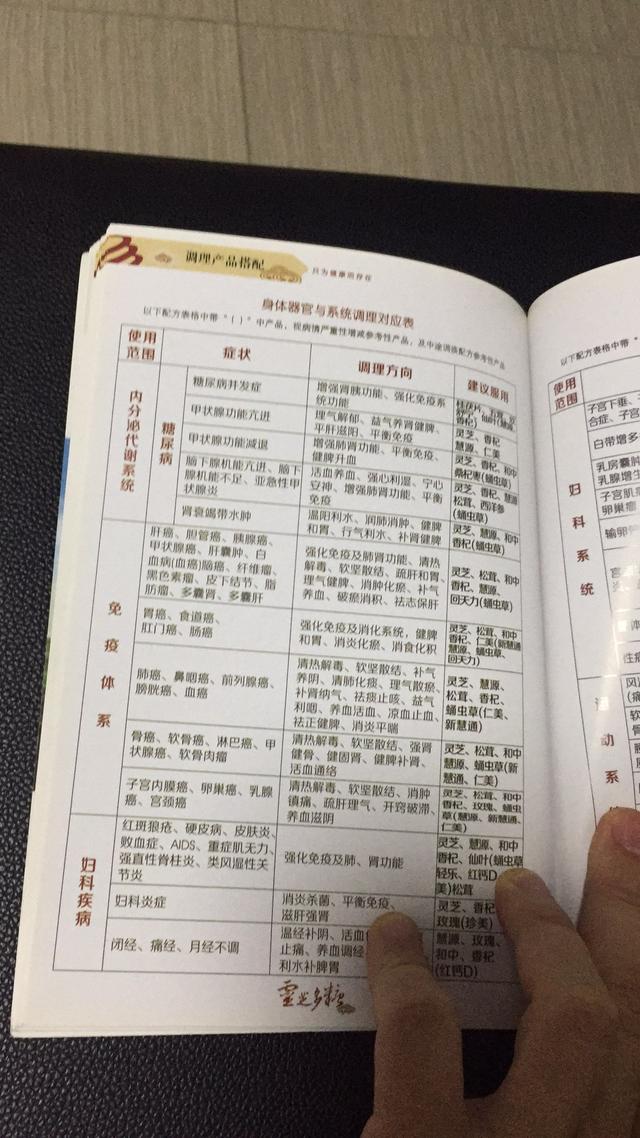 调理产品搭配
只为健康而存在
身体器官与系统调理对应表
以下配方表格中带“( )”中产品，视病情严重性增减参考性产品，及中途调换配方参考性产品
使用范围
症状
调理方向
建议服用
内分泌代谢系统
糖尿病
糖尿病并发症
增强肾胰功能、强化免疫系
统功能
甲状腺功能亢进
理气解郁、益气养肾健脾、
平肝滋阳、平衡免疫
灵芝、香杞
甲状腺功能减退
增强肺肾功能、平衡免疫、
健脾升血
慧源、仁美
灵芝、香杞、和中
桑杞枣(蛹虫草)
脑下腺机能亢进、脑下
腺机能不足、亚急性甲
状腺炎
活血养血、强心利湿、宁心
安神、增强肺肾功能、平衡
免疫
灵芝、香杞、慧源
松茸、西洋参
(蛹虫草)
肾衰竭带水肿
温阳利水、润肺消肿、健脾
和胃、行气利水、补肾健脾
灵芝、慧源、和中
香杞(蛹虫草)
免疫体系
肝癌、胆管癌、胰腺癌、
甲状腺癌、肝囊肿、白
血病(血癌)脑癌、纤维瘤、
黑色素瘤、皮下结节、脂
肪瘤、多囊肾、多囊肝
强化免疫及肺肾功能、清热
解毒、软坚散结、疏肝和胃、
理气健脾、消肿化瘀、补气
养血、破瘀消积、祛志保肝
灵芝、松茸、和中
香杞、慧源、
回天力(蛹虫草)
胃癌、食道癌、
肛门癌、肠癌
强化免疫及消化系统，健脾
和胃、消炎化瘀、消食化积
灵芝、松茸、和中
香杞、仁美(新慧通
慧源、蛹虫草、
回天力)
肺癌、鼻咽癌、前列腺癌、
膀胱癌、血癌
清热解毒、软坚散结、补气
养阴、清肺化痰、理气散瘀、
补肾纳气、祛痰止咳、益气
利咽、养血活血、凉血止血、
祛正健脾、消炎平喘
灵芝、慧源、
松茸、香杞、
蛹虫草(仁美、
新慧通)
骨癌、软骨癌、淋巴癌、甲
状腺癌、软骨肉瘤
清热解毒、软坚散结、强肾
健骨、健固肾、健脾补肾、
活血通络
灵芝、松茸、和中
慧源、蛹虫草(新
慧通、仁美)
子宫内膜癌、卵巢癌、乳腺
癌、宫颈癌
清热解毒、软坚散结、消肿
镇痛、疏肝理气、开窍破滞、
养血滋阴
灵芝、松茸、和中
香杞、玫瑰、蛹虫
草(慧源、新慧通、
仁美)
妇科疾病
红斑狼疮、硬皮病、皮肤炎、
败血症、AIDS、重症肌无力、
强直性脊柱炎、类风湿性关
节炎
强化免疫及肺、肾功能
灵芝、慧源、和中
香杞、仙叶(蛹虫草
轻乐、红钙D、
美)松茸
妇科炎症
消炎杀菌、平衡免疫、
滋肝强肾
灵芝、香杞
玫瑰(珍美)
闭经、痛经、月经不调
温经补阴、活血
止痛、养血调经
利水补脾胃
慧源、玫瑰、
和中、香杞
(红钙D)
靈芝多糖
以下配方表格中带“
使用范围
妇科系统
子宫下垂、子
合症、子宫
白带增多
乳房囊肿
乳腺增生
子宫肌
卵巢瘤
输卵